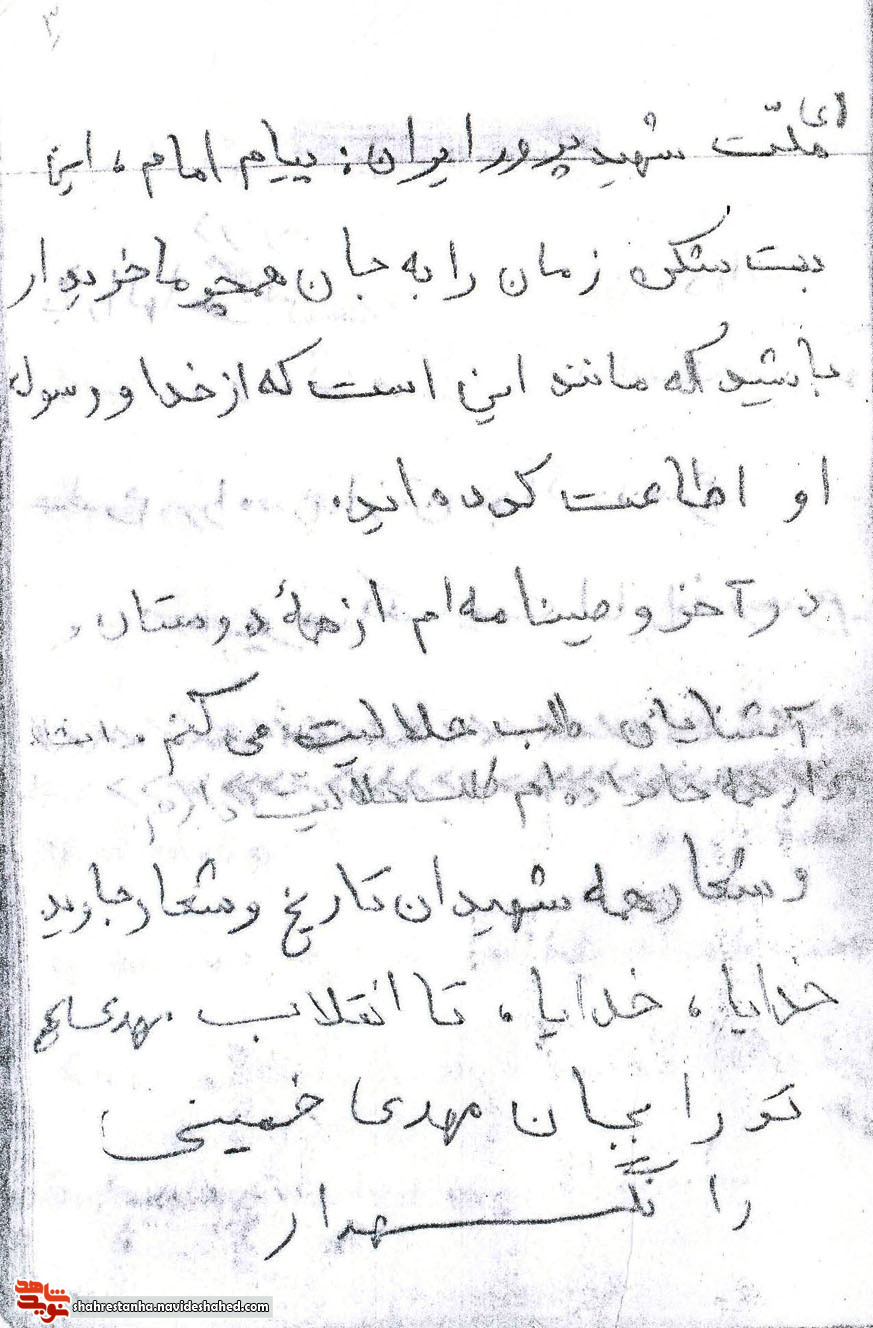 ۳
ای ملّت شهید پرور ایران: پیام امام، این
بت شکن زمان را به جان همچو ما خریدار
باشید که مانند این است که از خدا و رسول
او اطاعت کرده اید.
در آخر وصیتنامه ام از همهٔ دوستان و
آشنایان طلب حلالیت می کنم.
و از همه خانواده ام طلب حلالیت دارم
و شعار همه شهیدان تاریخ و شعار جاوید
خدایا، خدایا، تا انقلاب مهدی
تو را بجان مهدی خمینی
را نگهدار
شاهد
نوید
shahrestanha.navideshahed.com